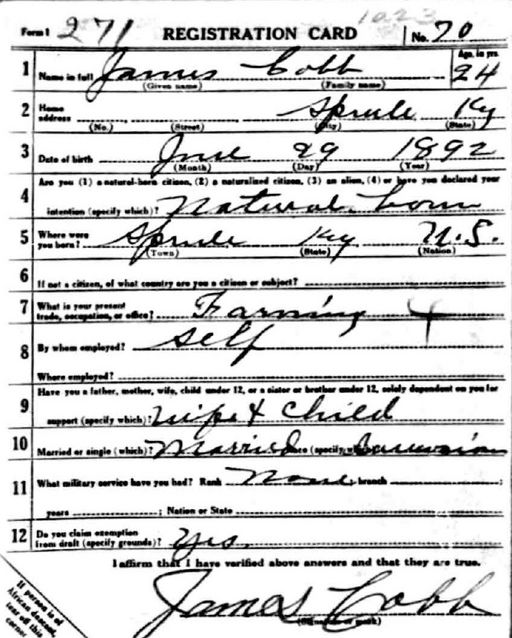 Form 1 271 REGISTRATION CARD No. 70
1 Name in full James Cobb Age, in yrs. 24
(Given name) (Family name)
2 Home address Sprule Ky
(No.) (Street) (City) (State)
3 Date of birth June 29 1892
(Month) (Day) (Year)
4 Are you (1) a natural-born citizen, (2) a naturalized citizen, (3) an alien, (4) or have you declared your
intention (specify which)? Natural born
5 Where were you born? Sprule Ky U.S.
(Town) (State) (Nation)
6 If not a citizen, of what country are you a citizen or subject?
7 What is your present trade, occupation, or office? Farming 4
8 By whom employed? Self
Where employed?
9 Have you a father, mother, wife, child under 12, or a sister or brother under 12, solely dependent on you for
support (specify which)? wife & child
10 Married or single (which)? Married (specify which)
11 What military service have you had? Rank None branch
years ; Nation or State
12 Do you claim exemption from draft (specify grounds)? Yes.
I affirm that I have verified above answers and that they are true.
James Cobb
(Signature or mark)
If person is of
African descent,
tear off this
corner